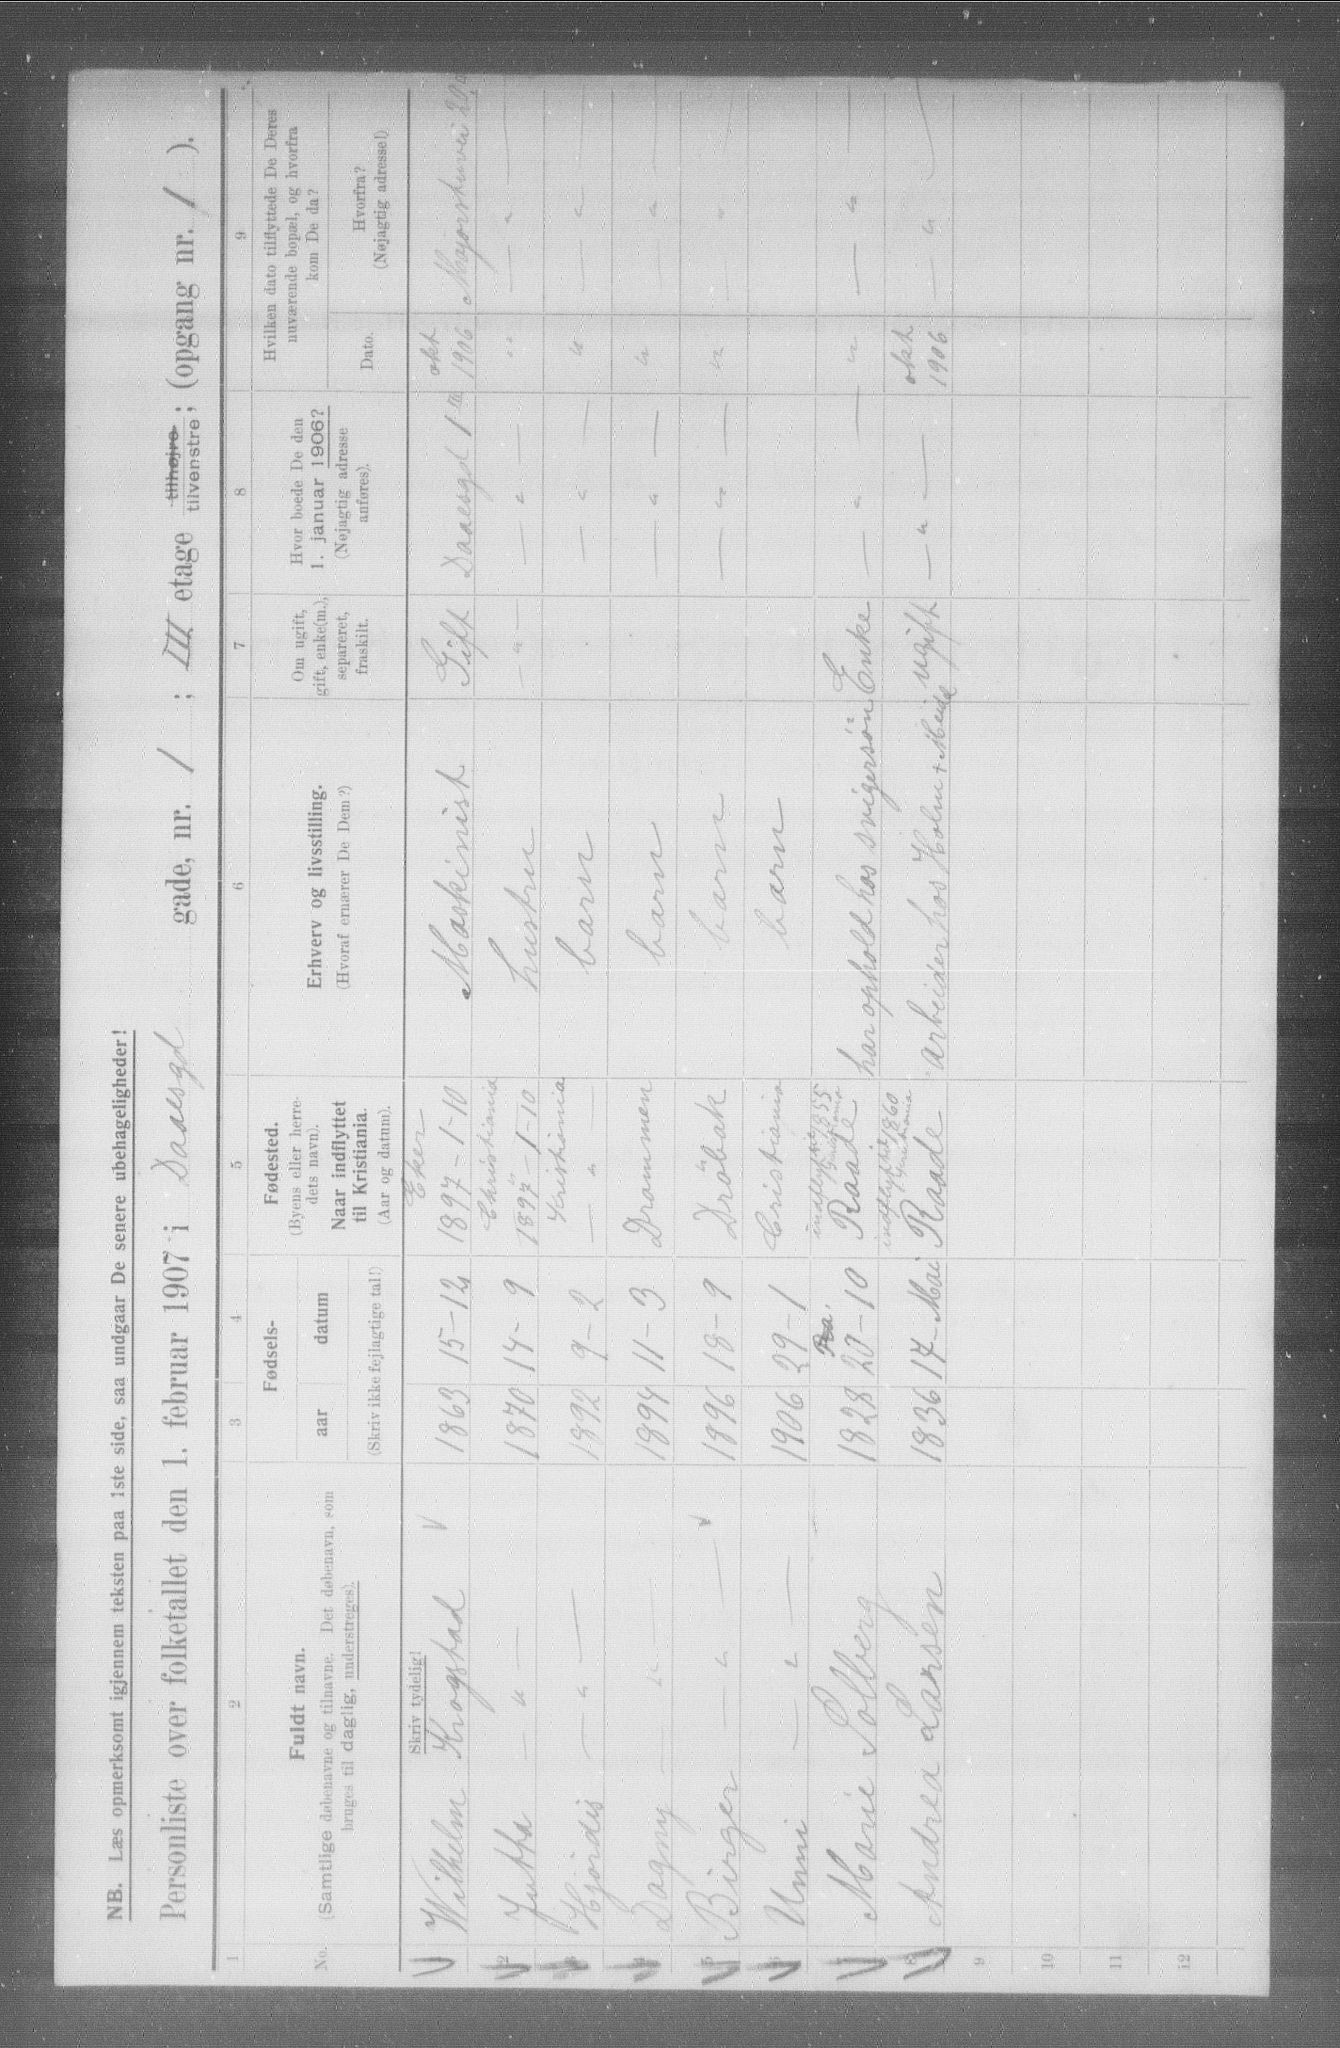 NB. Læs opmerksomt igjennem teksten paa 1ste side, saa undgaar De senere ubehageligheder!
Personliste over folketallet den 1. februar 1907 i Daaesgd gade, nr. 1 ; III etage tilhøjre tilvenstre ; (opgang nr. 1 ).
1 2 3 4 5 6 7 8 9
No.
Fuldt navn.
(Samtlige døbenavne og tilnavne. Det døbenavn, som
bruges til daglig, understreges).
Skriv tydelig!
Fødsels-
aar datum
(Skriv ikke fejlagtige tal!)
Fødested.
(Byens eller herre-
dets navn).
Naar indflyttet
til Kristiania.
(Aar og datum).
Erhverv og livsstilling.
(Hvoraf ernærer De Dem?)
Om ugift,
gift, enke(m.),
separeret,
fraskilt.
Hvor boede De den
1. januar 1906?
(Nøjagtig adresse
anføres).
Hvilken dato tilflyttede De Deres
nuværende bopæl, og hvorfra
kom De da?
Dato.
Hvorfra?
(Nøjagtig adresse!)
Wilhelm Krogstad 1863 15-12 Eker 1897-1-10 Maskinist Gift Daaesgd 1 okt 1906 Majorstuvei 20
2 Jutta — " — 1870 14-9 Christiania 1897-1-10 hustru — " — — " — " — " —
3 Hjørdis — " — 1892 9-2 Kristiania — " — barn — " — " — " —
4 Dagny — " — 1894 11-3 Drammen barn — " — " — " —
5 Birger — " — 1896 18-9 Drøbak barn — " — " "
6 Unni — " — 1906 29-1 Cristiania barn
7 Marie Solberg 1828 20-10 indflyttet 1855 Raade har ophold hos svigersön Enke — " — " — " —
8 Andrea Larsen 1836 17-Mai indflyttet 1860 Raade arbeider hos Holm + ugift — " — okt 1906 — " —
9
10
11
12